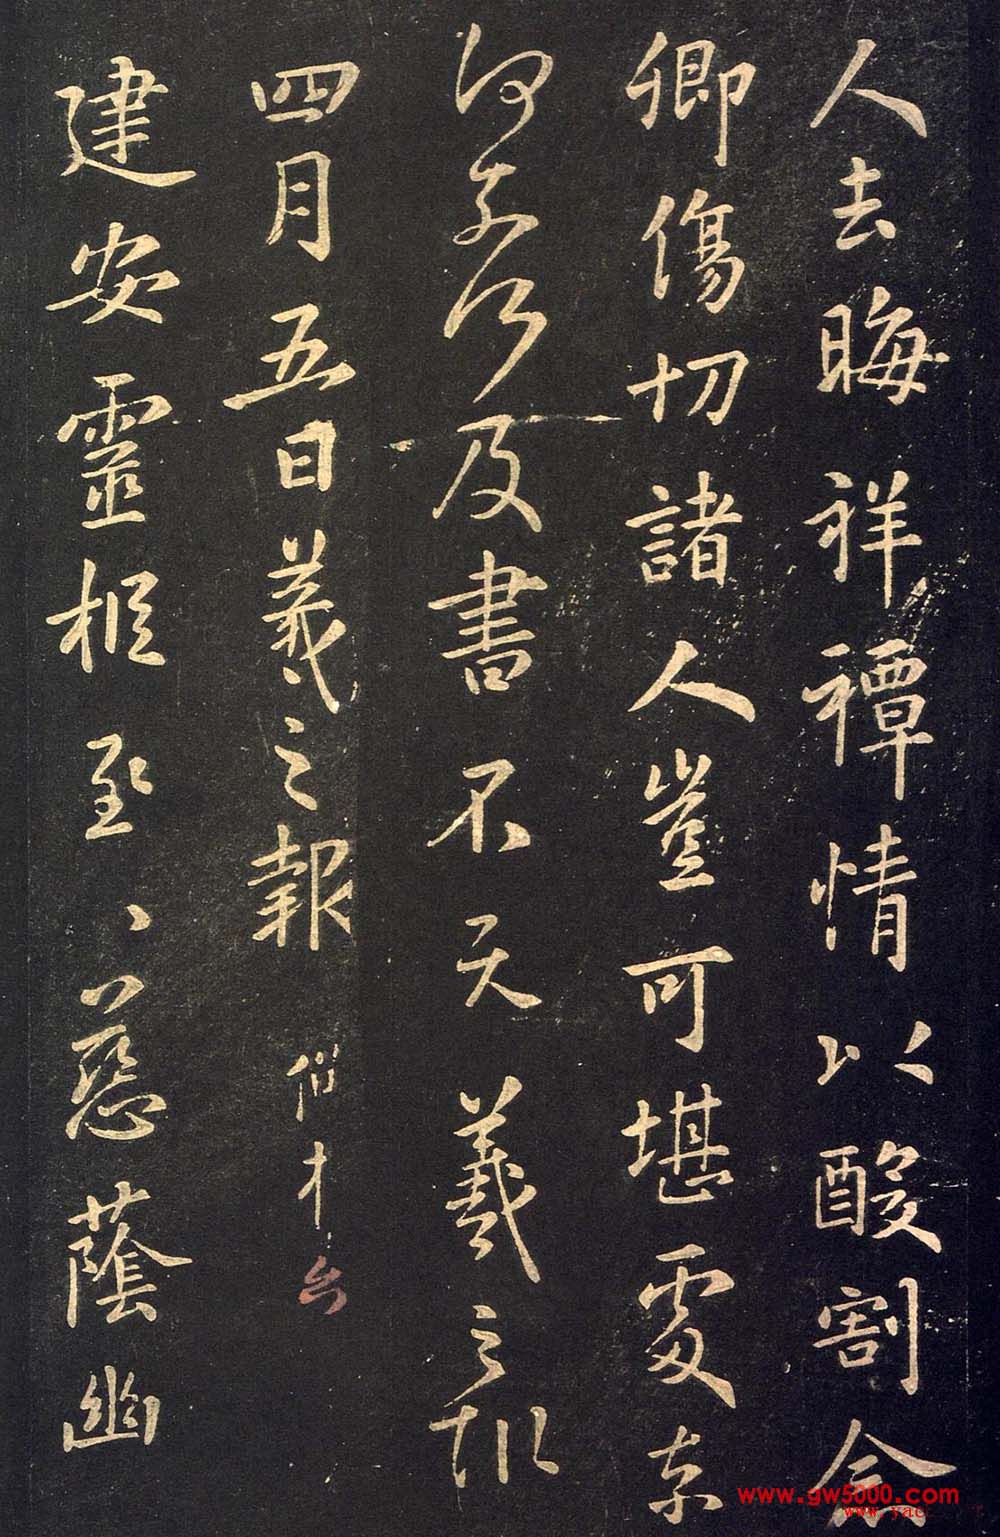 人去晦祥禫情以酸割念
卿傷切諸人豈可堪處奈
何奈何及書不羲之報
四月五日羲之報
建安靈柩至慈蔭幽
www.gw5000.com